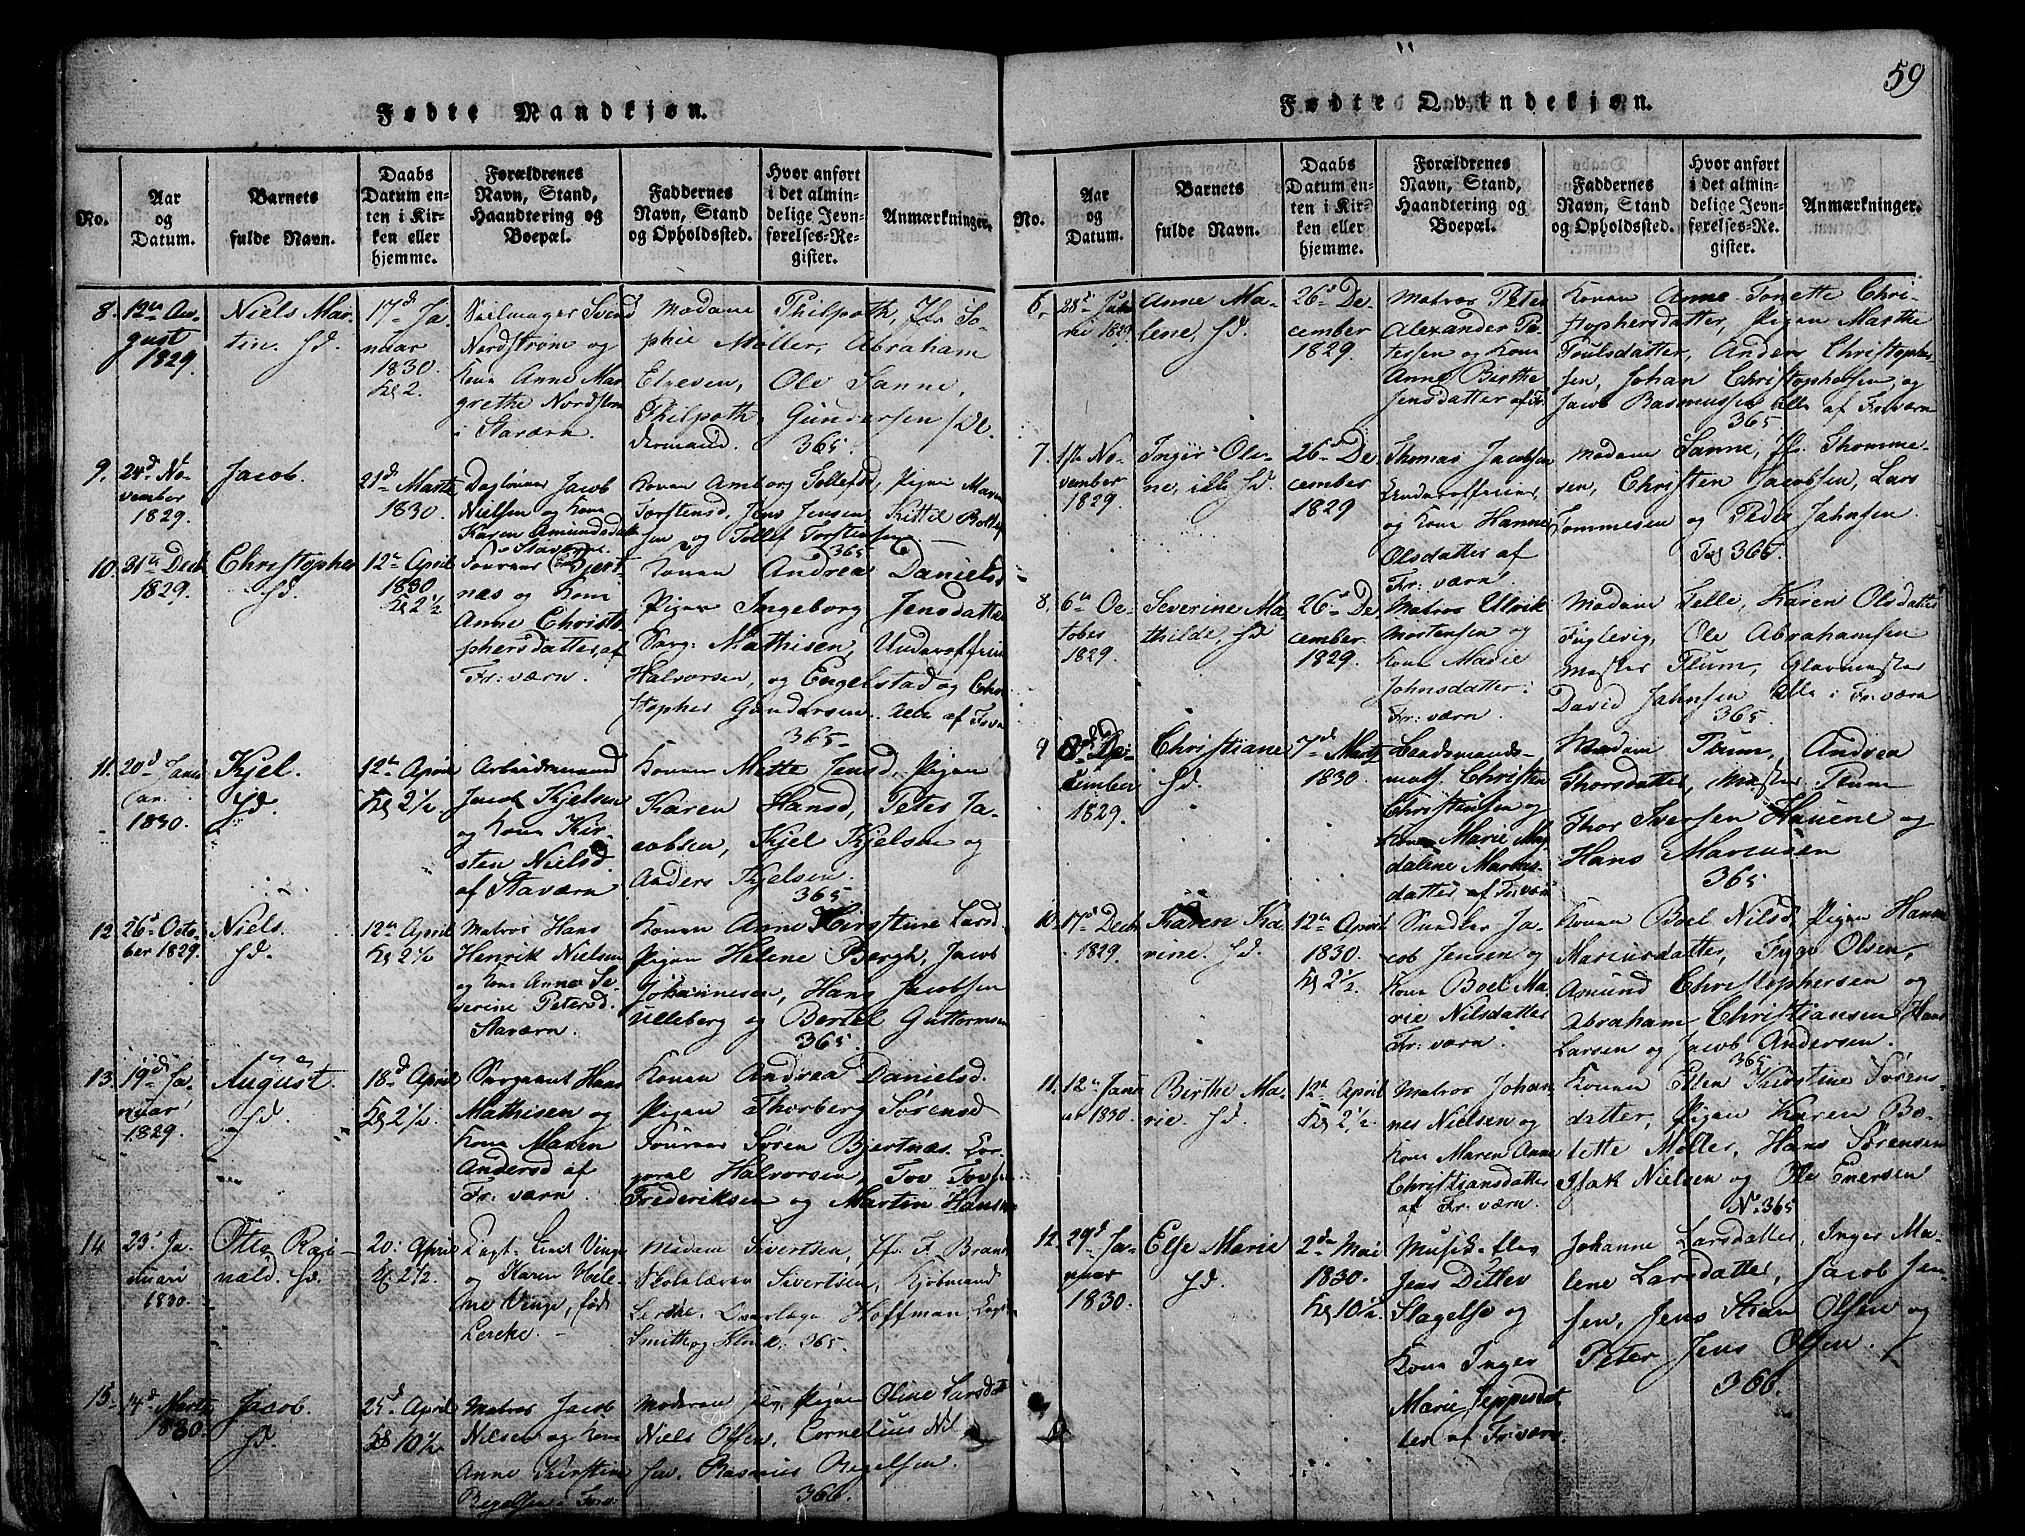 59
Fødte Mandkjøn.
No.
Aar
og
Datum.
Barnets
fulde Navn.
Daabs
Datum en-
ten i Kir-
ken eller
hjemme.
Forældrenes
Navn, Stand,
Haandtering og
Boepæl.
Faddernes
Navn, Stand
og Opholdssted.
Hvor anført
i det almin-
delige Jevn-
førelses-Re-
gister.
Anmærkninger.
8.
12te Au-
gust
1829.
Niels Mar-
tin. hd.
17d Ja-
nuar
1830
Kg 2.
Svend
Nordstrøm og
Kone Anne Mar-
grethe Nordstrøm
i Staværn.
Madame Philpoth, Jfr. So-
phie Møller, Abraham
Ole Sanne,
Philpoth, Gundersen
365
9.
24d No-
vember
1829.
Jacob.
21d Marts
1830.
Dagløner Jacob
Nielsen og Kone
Karen Amundsdat
Staværn
Konen Amborg Tollefsd, Pigen Maren
Torstensd, Jens Jensen, Kittil
sen og Tollef Torstensen
365
10.
31te Decb
1829.
Christopher
hd.
12te April
1830
Kg 2½
Fourer Bjert-
næs og Kone
Anne Christo-
phersdatter, af
Fr: værn.
Konen Andrea Danielsd
Pigen Ingeborg Jensdatter
Sarg: Mathisen, Underofficier
Halvorsen, og Engelstad og Chri-
stopher Gundersen. Alle af Frværn
365
11.
20d Janu
ar
1830.
Kjel.
hd.
12te April
Kg 2½
Arbeidsmand
Jacob Kjelsen
og Kone Kir-
sten Nielsd.
af Staværn
Konen Mette Jensd, Pigen
Karen Hansd, Peter Ja-
cobsen, Kjel Kjelsen og
Anders Kjelsen.
365
12.
26d Octo-
ber 1829.
Niels.
hd.
12te April
Kg 2½
Matros Hans
Henrik Nielsen
og Kone Anne Se-
verine Petersd.
Staværn.
Konen Anne Kirstine Larsd.
Pigen Helene Bergh, Jacob
Johannesen, Hans Jacobsen
Ulleberg og Bertel Guttormsen
365.
13.
19d Ja-
nuar
1829.
August
hd.
18d April
Kg 2½.
Sargeant Hans
Mathisen og
Kone Maren
Andersd af
Fr: værn.
Konen Andrea Danielsd.
Pigen Thorberg Sørensd
Fourer Søren Bjertnæs. Cor-
poral Halvorsen, Tov Tovsen
Frederiksen og Martin Hansen
14
23d Ja-
nuari
1830.
Otto Regi-
nald. hd.
20: April
Kg 2½.
Capt: Vinge
og Karen Hele-
ne Vinge, født
Lercke.
Madam Sivertsen, Jfr. F. Brand
Skolelærer Sivertsen, Kjøbmand
Lercke. Overlæge Hoffman, Capt
Smith og Klinck. 365.
15.
4d Marts
1830.
Jacob.
hd.
25d April
Kg 10½.
Matros Jacob
Nilsen og Kone
Anne Kirstine
Regelsen i
Moderen Pigen Oline Larsdatt
Niels Olsen, Cornelius Nil
sen. Rasmus Regelsen.
366.
Fødte Qvindekjøn.
No.
Aar
og
Datum.
Barnets
fulde Navn.
Daabs
Datum en-
ten i Kir-
ken eller
hjemme.
Forældrenes
Navn, Stand,
Haandtering og
Boepæl.
Faddernes
Navn, Stand
og Opholdssted.
Hvor anført
i det almin-
delige Jevn-
førelses-Re-
gister.
Anmærkninger.
6.
28d
1829.
Anne Ma-
lene, hd.
26d De-
cember
1829.
Matros Peter
Alexander Pe-
tersen og Kone
Anne Birthe
Jensdatter af Fr.
Konen Anne Tonette Chri-
stophersdatter, Pigen Marthe
Poulsdatter, Anders Christopher-
sen, Johan Christophersen, og
Jacob Rasmussen alle af Fr:værn
365
7.
No-
vember
1829.
Inger Ole-
ne, hd.
26d De-
cember
1829
Thomas Jacobsen
Underofficier,
og Kone Hanne
Olsdatter af
Fr: værn.
Madam Sanne, Jfr. Thomme-
sen, Christen Jacobsen, Lars
Tommesen og Peder Jahnsen.
365.
8.
6te Oc-
tober
1829.
Severine Ma-
thilde, hd.
26d De-
cember
1829.
Matros Ulrik
Mortensen og
Kone Marie
Johnsdatter:
Fr: værn.
Madam Telle, Karen Olsdatter
Fuglevig, Ole Abrahamsen
Mester Flum, Glarmester
David Jahnsen alle i Fr:værn
365.
9
8de De-
cember
1829.
Christiane
hd.
7d Marts
1830.
Leedsmands-
mast. Christen
Christensen og
Kone Marie Mag-
dalene Markus-
datter af Fr:værn
Madam Flum, Andrea
Thorsdatter, Mester Flum
Thor Iversen Hauene og
Hans Marcusen
365
10.
17d Decb
1829.
Karen Ka-
rine. hd.
12te April
1830.
Kg 2½.
Svendler Ja-
cob Jensen og
Kone Boel Ma-
rie Nilsdatter
Fr: værn.
Konen Boel Nilsd Pigen Hanne
Mariusdatter, Tyge Olsen,
Asmund Christophersen og
Abraham Christiansen, Hans
Larsen og Jacob Andersen.
365.
11.
12te Janu
ar 1830.
Birthe Ma-
rie. hd.
12te April
Kg 2½.
Matros Johan-
nes Nielsen og
Kone Maren Anne
Christiansdatter
af Fr: værn.
Konen Ellen Kirstine Sørens-
datter, Pigen Karen Bo-
lette Møller, Hans Sørensen
Isak Nielsen og Ole Enersen
No 365
12.
29d Ja-
nuar
1830.
Else Marie
hd.
2den Mai
1830.
Kg 10½.
Musik.
Jens Ditlev
Slagelse og
Kone Inger
Marie Jeppesdat
ter af Fr:værn.
Johanne Larsdatter, Inger Ma-
lene Larsdatter, Jacob Jan-
sen, Jens Stian Olsen og
Peter Jens Olsen.
366.